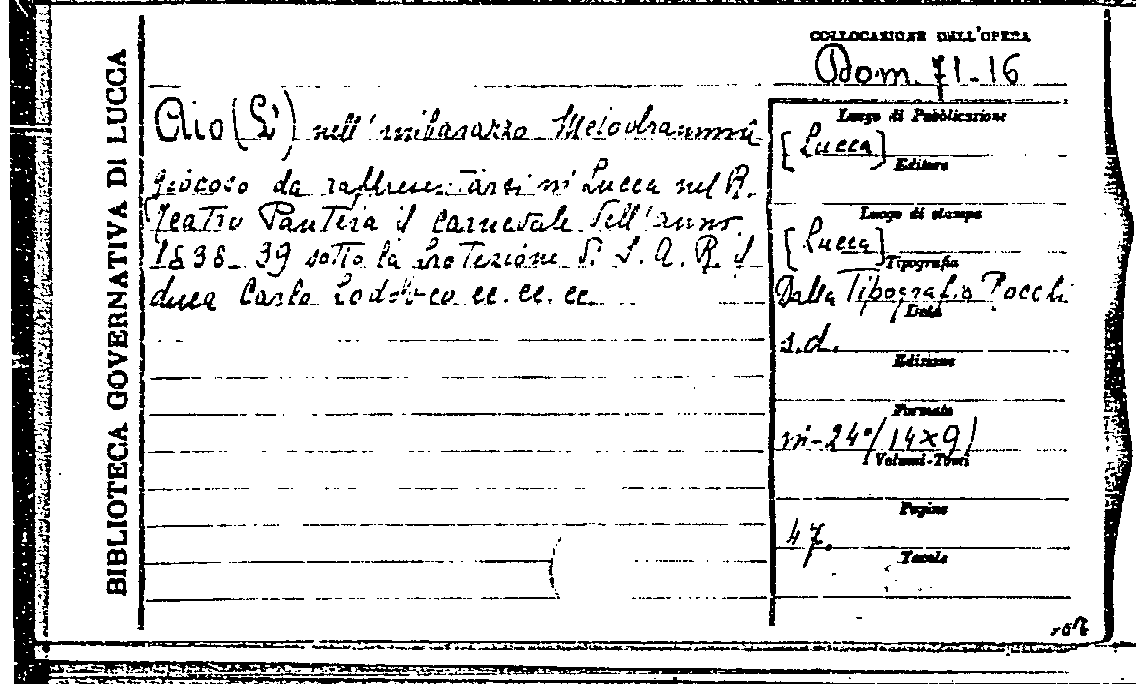 BIBLIOTECA GOVERNATIVA DI LUCCA
COLLOCAZIONE DELL'OPERA
Dom. 71-16
Aio (L') nell'imbarazzo Melodramma
giocoso da rappresentarsi in Lucca nel R.
Teatro Pantera il Carnevale dell'anno
1838-39 sotto la Protezione di S. A. R. il
duca Carlo Lodovico ec. ec. ec.
Luogo di Pubblicazione
[Lucca]
Editore
Luogo di stampa
[Lucca]
Tipografia
Dalla Tipografia Rocchi
Data
s.d.
Edizione
Formato
in-24°/14x9/
Volumi-Tomi
Pagine
47.
Tavole